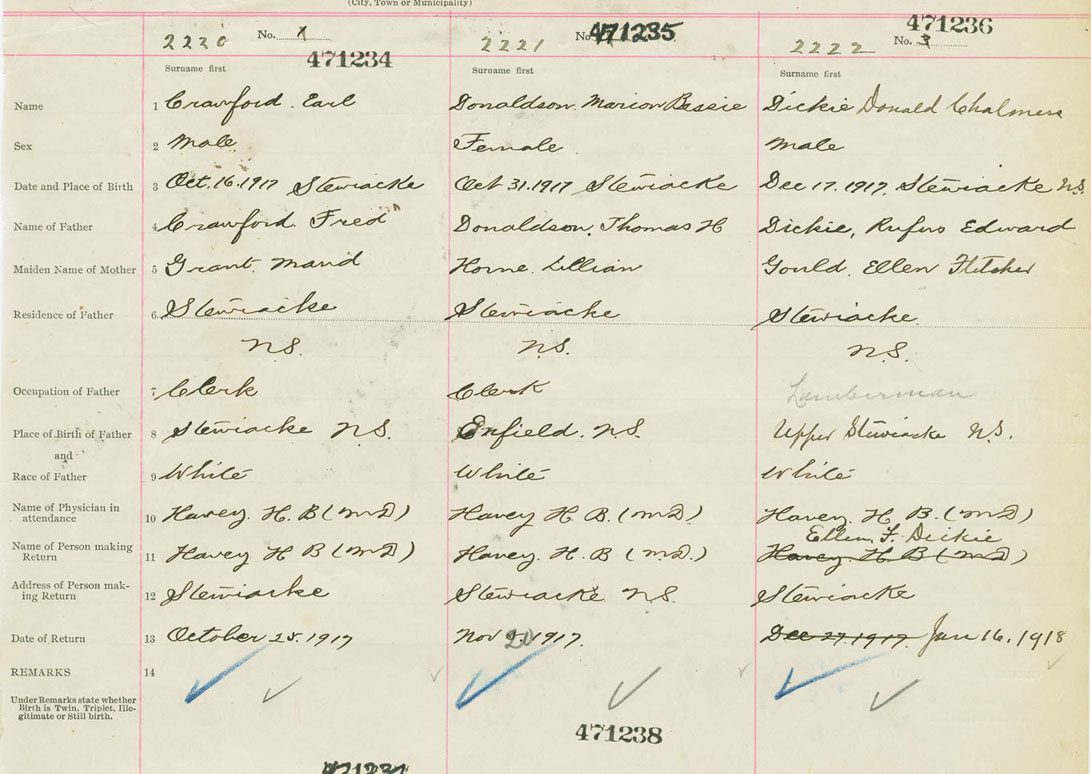 (City, Town or Municipality)
2220 No. 1 471234 2221 No. 471235 2222 No. 3 471236
Surname first Surname first Surname first
Name 1 Crawford. Earl Donaldson. Marion Bessie Dickie Donald Chalmers
Sex 2 Male Female Male
Date and Place of Birth 3 Oct. 16. 1917 Stewiacke Oct 31. 1917 Stewiacke Dec 17. 1917. Stewiacke N.S.
Name of Father 4 Crawford. Fred Donaldson. Thomas H Dickie, Rufus Edward
Maiden Name of Mother 5 Grant. Maud Horne. Lillian Gould. Ellen Fletcher
Residence of Father 6 Stewiacke Stewiacke Stewiacke
N.S. N.S. N.S.
Occupation of Father 7 Clerk Clerk Lumberman
Place of Birth of Father 8 Stewiacke N.S. Enfield. N.S. Upper Stewiacke N.S.
and
Race of Father 9 White White White
Name of Physician in
attendance 10 Havey. H. B (M.D) Havey H. B. (M.D.) Havey. H. B. (M.D)
Ellen F. Dickie
Name of Person making
Return 11 Havey H B (M.D) Havey. H. B (M.D.) Havey. H B (M.D)
Address of Person mak-
ing Return 12 Stewiacke Stewiacke N.S. Stewiacke
Date of Return 13 October 25. 1917 Nov 20. 1917. Dec 27. 1917. Jan 16, 1918
REMARKS 14
Under Remarks state whether
Birth is Twin, Triplet, Ille-
gitimate or Still birth.
471238